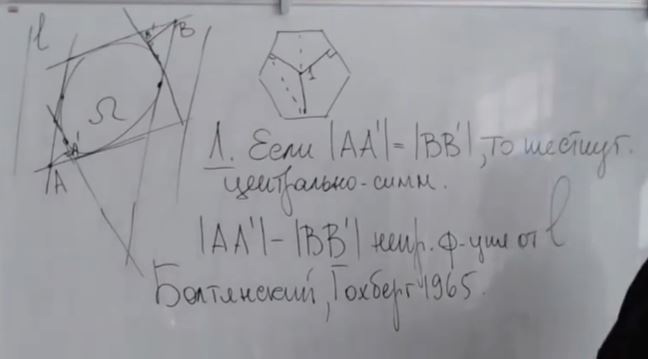 l
B'
B
Ω
A'
A
1
Л. Если |AA'| = |BB'|, то шестиуг.
центрально-симм.
|AA'| - |BB'| непр. ф-ция от l
Болтянский, Гохберг 1965.